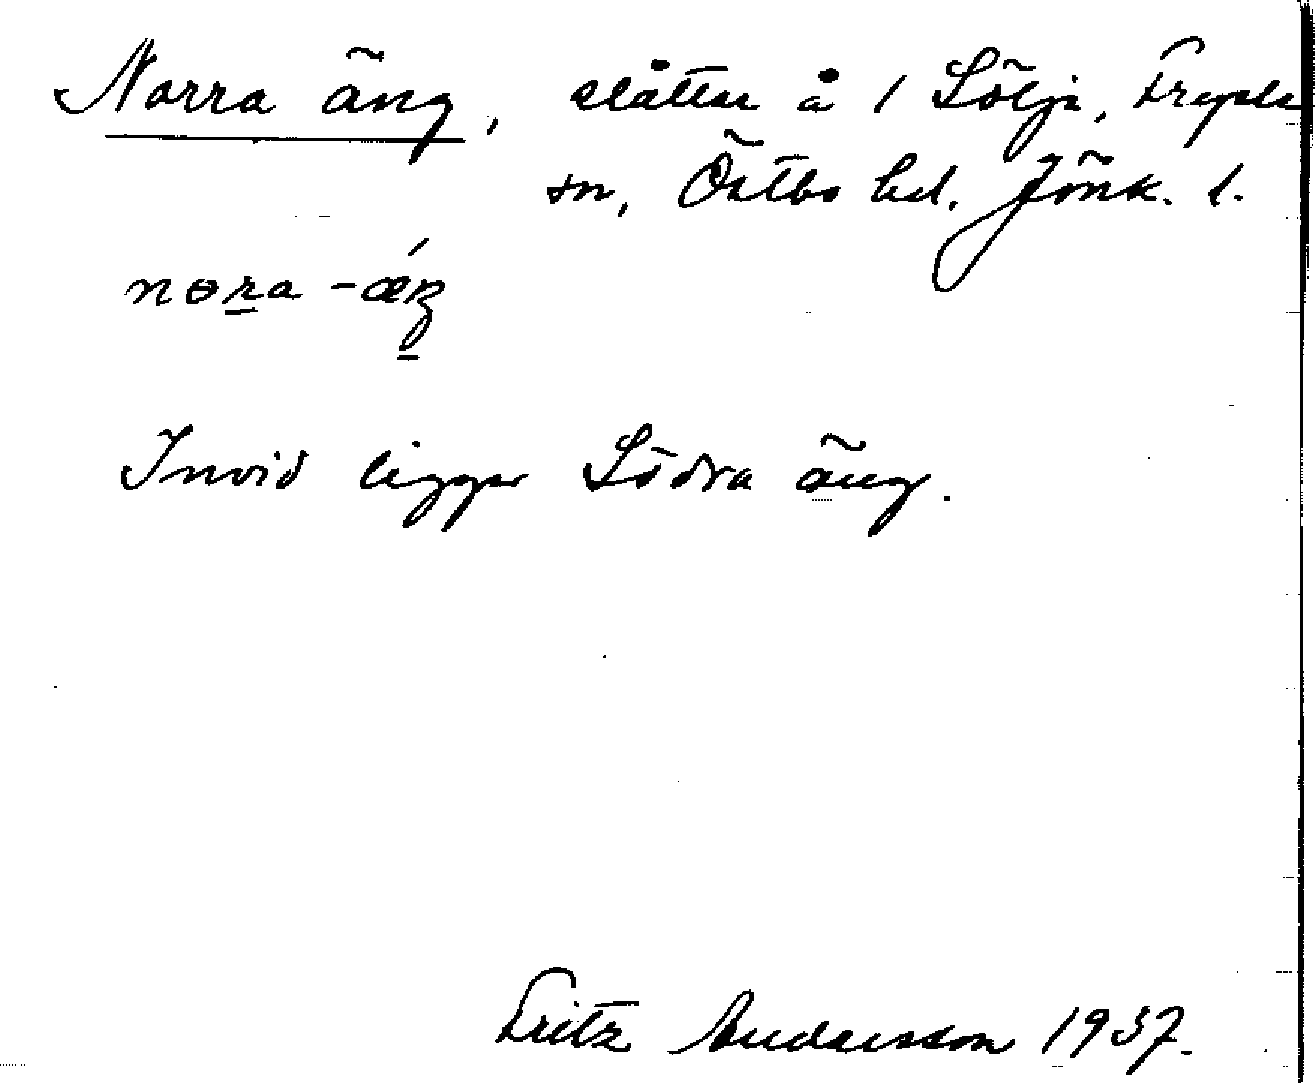 Norra äng, slåtter å 1 Sölje, Fryele
sn, Östbo hd. Jönk. l.
nɵra -ǽŋ
Invid ligger Södra äng.
Fritz Andersson 1937.